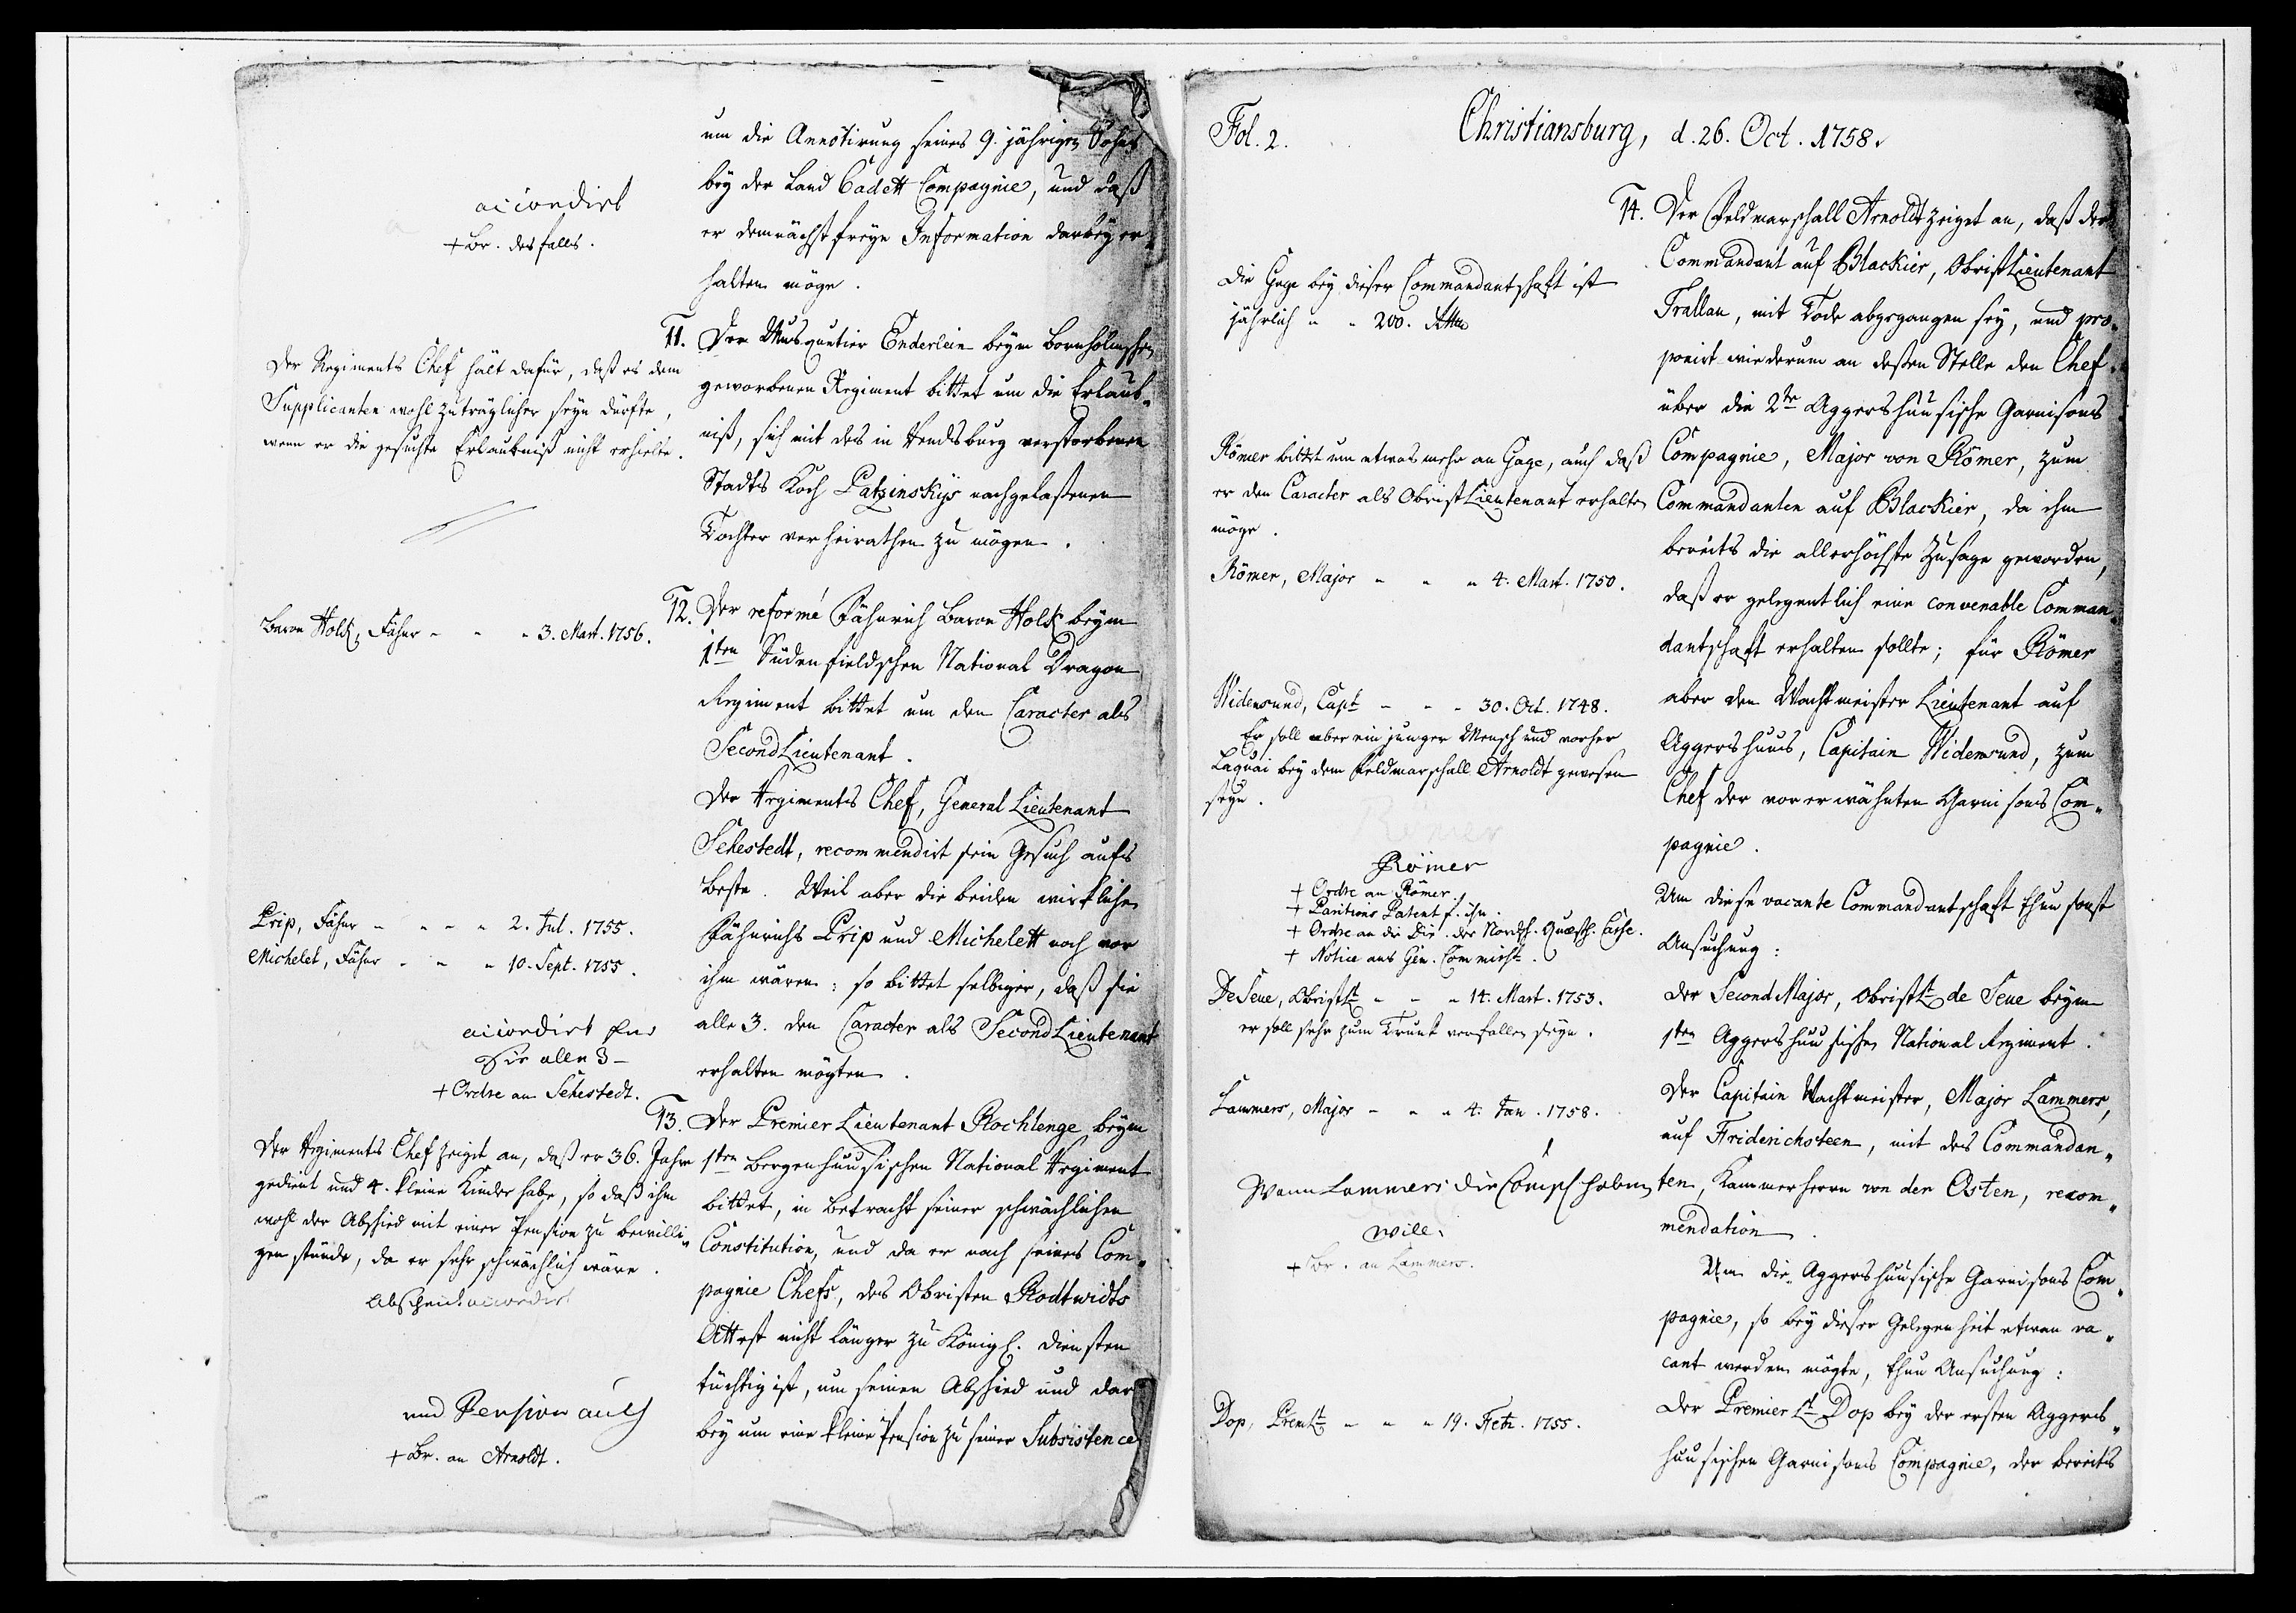 um die Annotirung seines 9. jährigen Sohns
bey der Land Cadett Compagnie, und daß
er demnächst freye Information darbey er-
halten möge.
accordirt
+ Br. desfalls.
11. Der Musquetier Enderlein beym Bornholmschen
geworbenen Regiment bittet um die Erlaub-
niß, sich mit des in Rendsburg verstorbenen
Stadts Koch Patzinskys nachgelaßenen
Tochter verheirathen zu mögen.
Der Regiments Chef hält dafür, daß es dem
Supplicanten wohl zuträglicher seyn dürfte,
wenn er die gesuchte Erlaubniß nicht erhielte.
12. Der reformé Fähnrich Baron Holck beym
1ten Südenfieldschen National Dragon
Regiment bittet um den Caracter als
Second Lieutenant.
Baron Holck, Fähnr - - - 3. Mart. 1756.
Der Regiments Chef, General Lieutenant
Sehestedt, recommendirt sein Gesuch aufs
beste. Weil aber die beiden wirklichen
Fähnrichs Prip und Michelett noch vor
ihm wären: so bittet selbiger, daß sie
alle 3. den Caracter als Second Lieutenant
erhalten mögten.
Prip, Fähnr - - - - 2. Jul. 1755.
Michelet, Fähnr - - - 10. Sept. 1755.
accordirt
für alle 3 -
+ Ordre an Sehestedt.
13. Der Premier Lieutenant Rochlenge beym
1ten Bergenhuusischen National Regiment
bittet, in Betracht seiner schwächlichen
Constitution, und da er nach seines Com-
pagnie Chefs, des Obristen Rodtwidts
Attest nicht länger zu Königl. Diensten
tüchtig ist, um seinen Abschied und dar
bey um eine kleine Pension zu seiner Subsistence
Der Regiments Chef zeiget an, daß er 36. Jahre
gedient und 4. kleine Kinder habe, so daß ihm
wohl der Abschied mit einer Pension zu bewilli-
gen stünde, da er sehr schwächlich wäre.
Abscheid accordirt
und Pension auch
+ Br. an Arnoldt.
Fol. 2. Christiansburg, d. 26. Oct. 1758.
14. Der Feldmarschall Arnoldt zeiget an, daß der
Commandant auf Blackier, Obrist Lieutenant
Frallau, mit Tode abgegangen sey, und pro-
poniret wiederum an deßen Stelle den Chef
über die 2te Aggershuusische Garnisons
Compagnie, Major von Römer, zum
Commandanten auf Blackier, da ihm
bereits die allerhöchste Zusage geworden,
daß er gelegentlich eine convenable Comman-
dantschaft erhalten sollte; für Römer
aber den Wachtmeister Lieutenant auf
Aggershuus, Capitain Widemund, zum
Chef der vorerwähnten Garnisons Com-
pagnie.
Die Gage bey dieser Commandantschaft ist
jährlich - - 200. Rthlr
Römer bittet um etwas mehr an Gage, auch daß
er den Caracter als Obrist Lieutenant erhalten
möge.
Römer, Major - - - 4. Mart. 1750.
Widemund, Capt - - - 30. Oct. 1748.
Er soll aber ein junger Mensch und vorher
Laquai bey dem Feldmarschall Arnoldt gewesen
seyn.
Römer
+ Ordre an Römer.
+ Paritions Patent f. ihn.
+ Ordre an die Dir. der Nordsch. Quæsth. Casse.
+ Notice ans Gen. Commiss.
Um diese vacante Commandantschaft thun sonst
Ansuchung:
Der Second Major, Obristlt de Seue beym
1sten Aggershuusischen National Regiment.
De Seue, Obristlt - - - 14. Mart. 1753.
er soll sehr zum Trunk verfallen seyn.
Der Capitain Wachtmeister, Major Lammers,
auf Friderichsteen, mit des Commandan-
ten, Kammerherrn von der Osten, recom-
mendation.
Lammers, Major - - - 4. Jan. 1758.
Wann Lammers die Comp haben
will.
+ Br. an Lammers.
Um die Aggershuusische Garnisons Com-
pagnie, so bey dieser Gelegenheit etwan va-
cant werden mögte, thun Ansuchung:
Der Premier Lt Dop bey der ersten Aggers-
huusischen Garnisons Compagnie, der bereits
Dop, Premlt - - - 19. Febr. 1755.